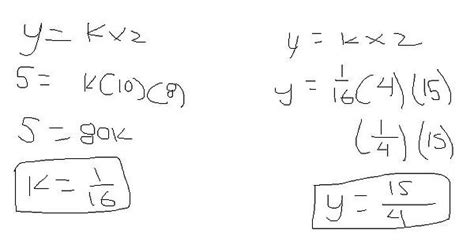 y = kxz
5 = k(10)(8)
5 = 80k
k = 1/16
y = kxz
y = 1/16 (4)(15)
(1/4)(15)
y = 15/4